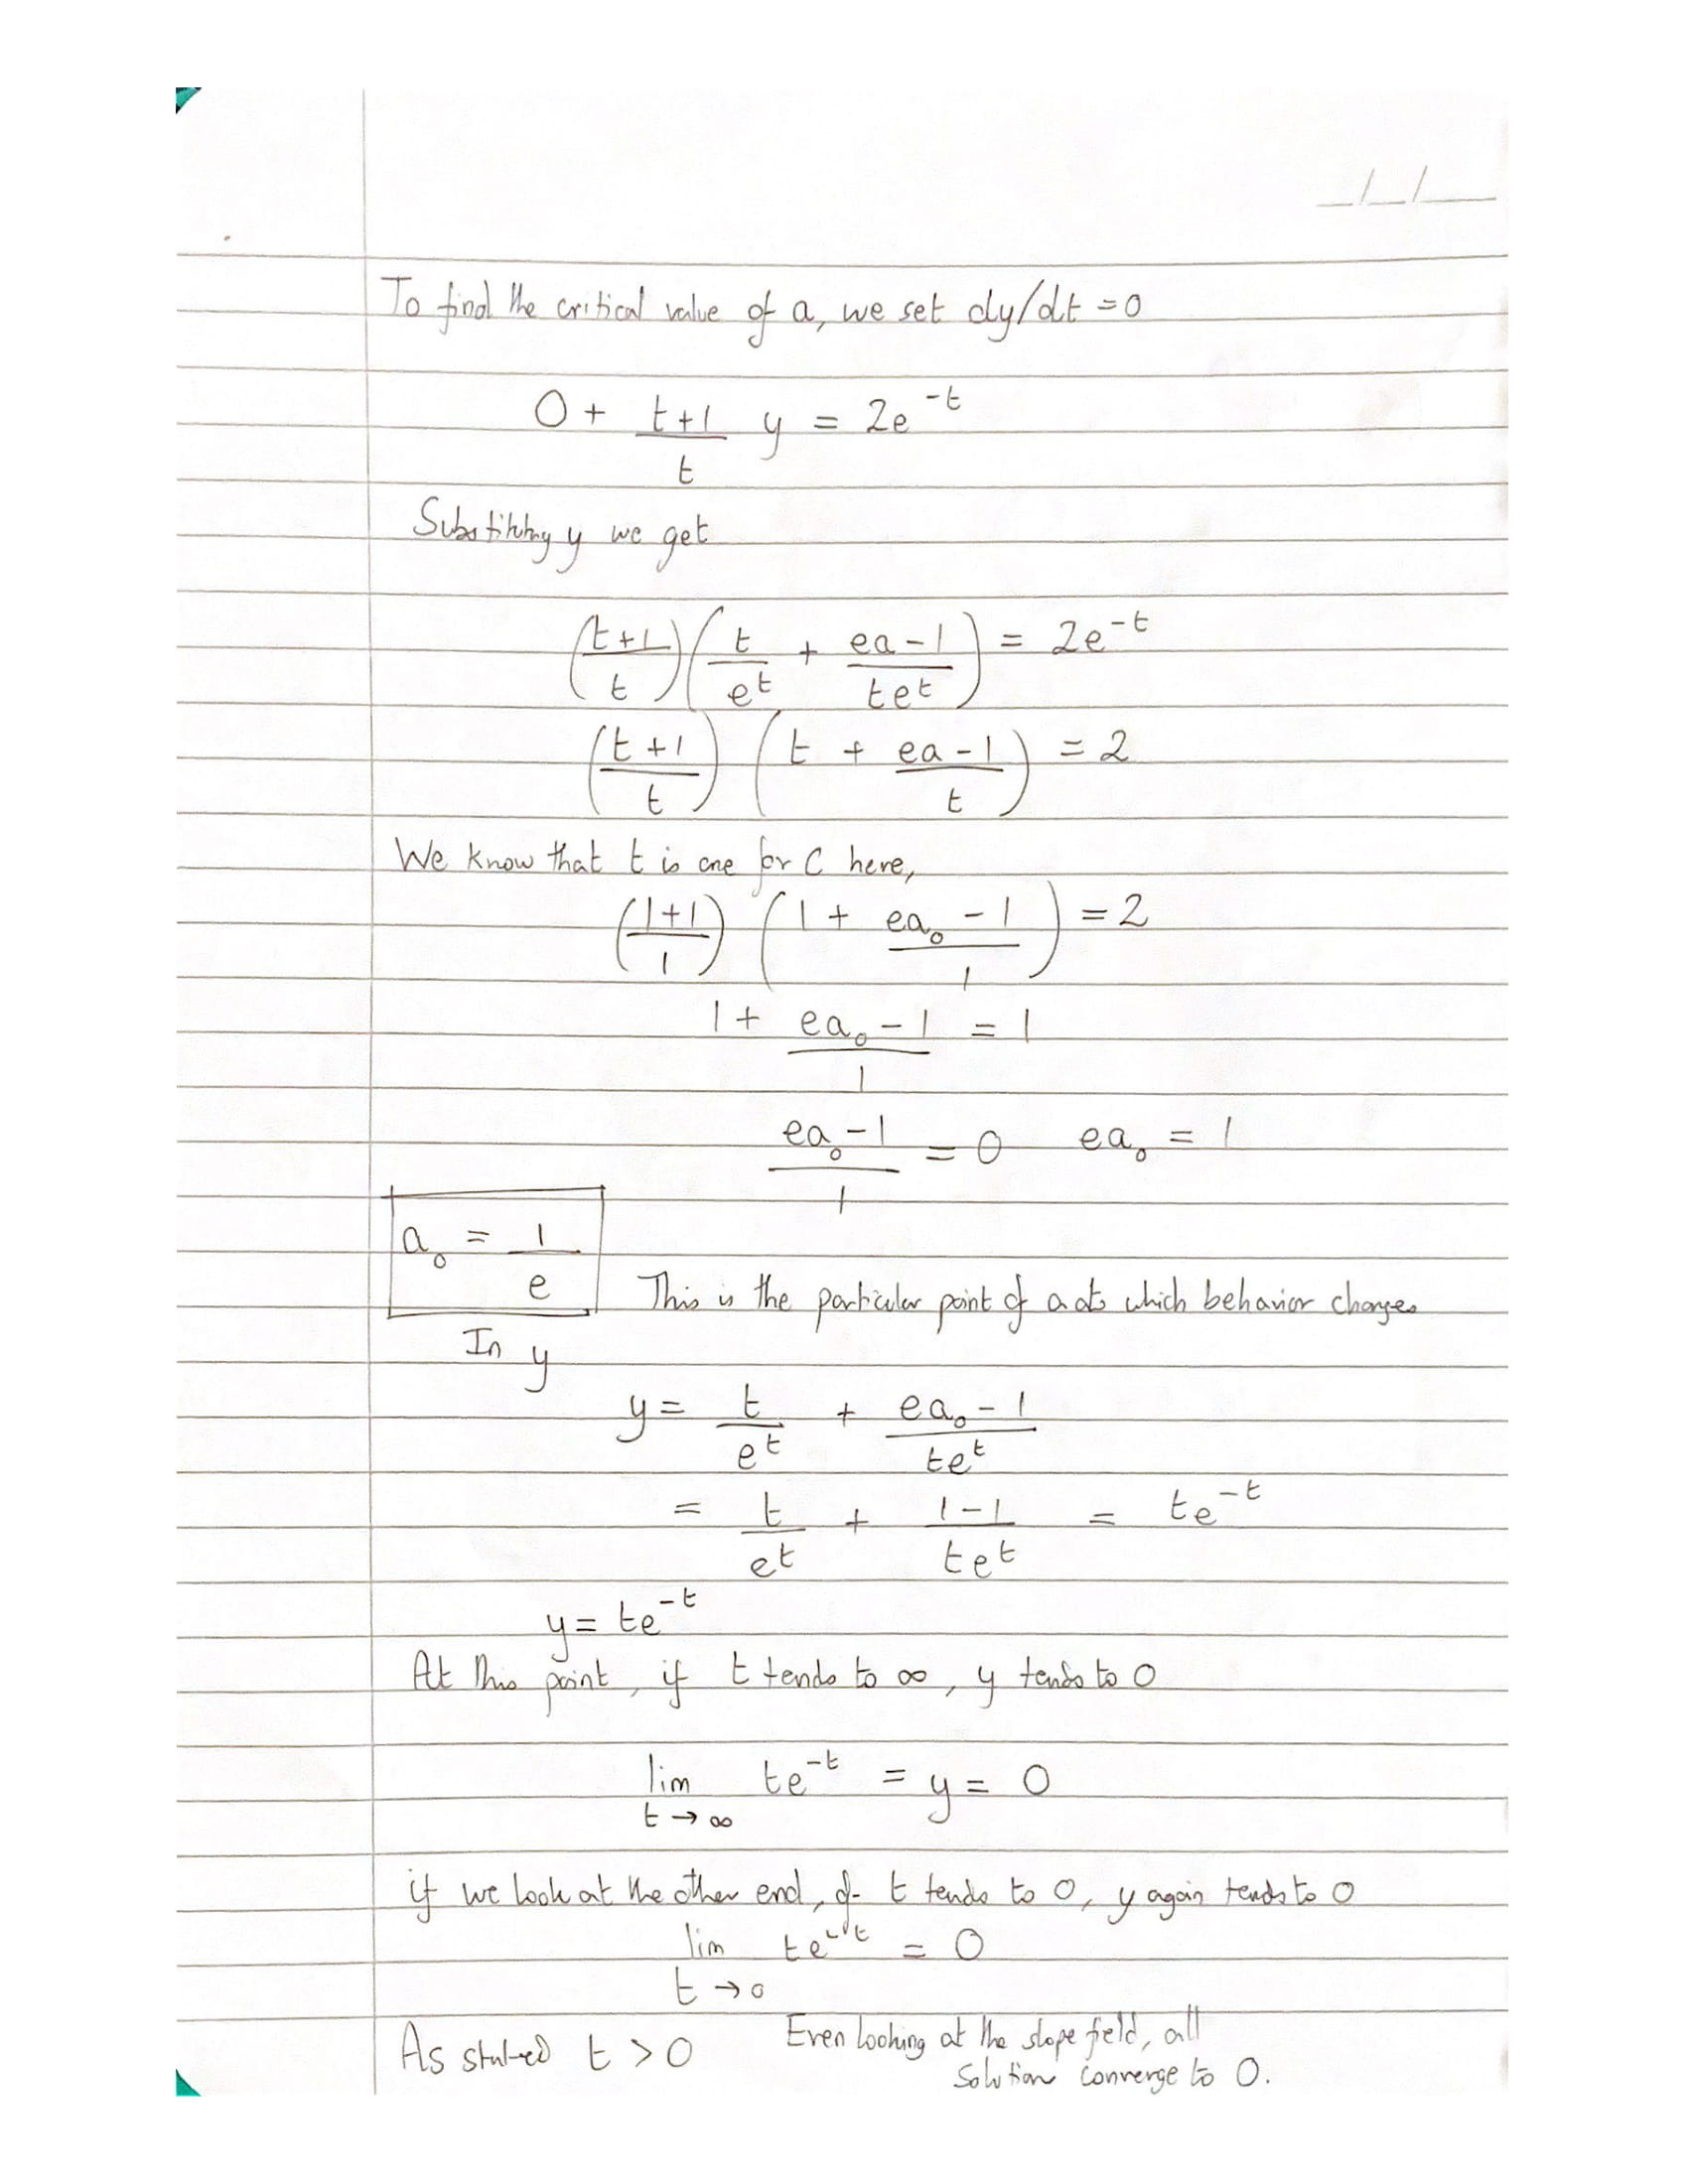 _/_/__
To find the critical value of a, we set dy/dt = 0
0 + (t+1)/t y = 2e^-t
Substituting y we get
((t+1)/t) (t/e^t + (ea-1)/(te^t)) = 2e^-t
((t+1)/t) (t + (ea-1)/t) = 2
We know that t is one for C here,
((1+1)/1) (1 + (ea₀-1)/1) = 2
1 + (ea₀-1)/1 = 1
(ea₀-1)/1 = 0 ea₀ = 1
a₀ = 1/e This is the particular point of a at which behavior changes
In y
y = t/e^t + (ea₀-1)/(te^t)
= t/e^t + (1-1)/(te^t) = te^-t
y = te^-t
At this point, if t tends to ∞, y tends to 0
lim t→∞ te^-t = y = 0
if we look at the other end, if t tends to 0, y again tends to 0
lim t→0 te^-t = 0
As stated t > 0 Even looking at the slope field, all
solution converge to 0.